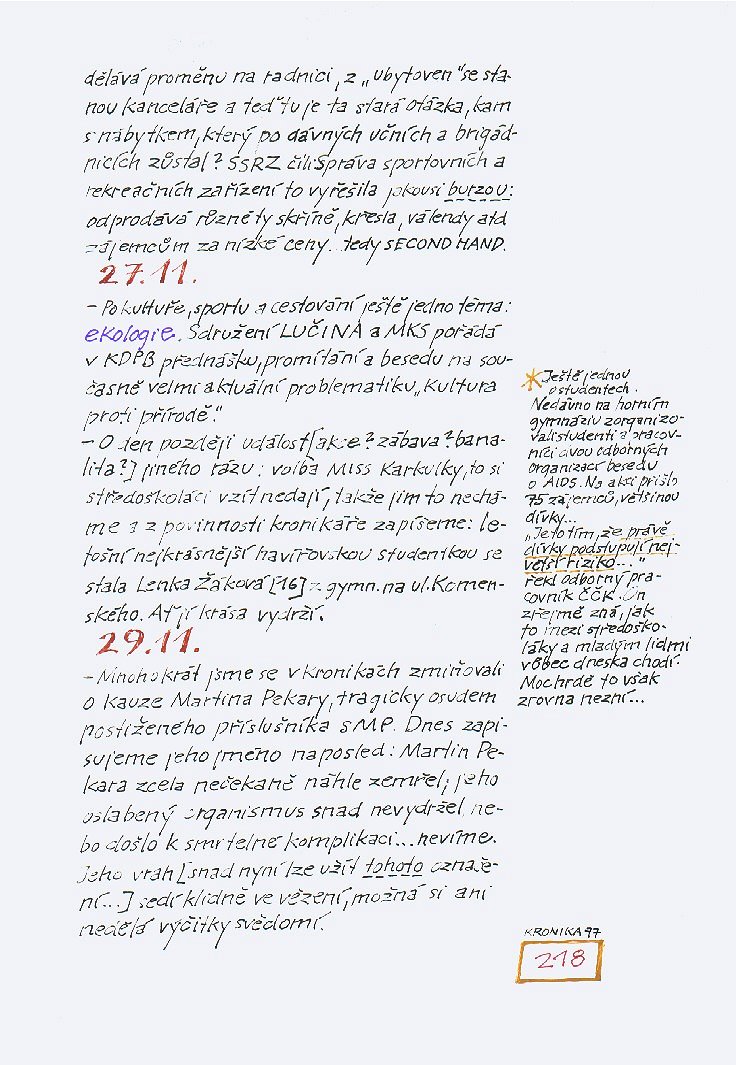 dělává proměnu na radnici, z „ubytoven" se sta-
nou kanceláře a teď tu je ta stará otázka, kam
s nábytkem, který po dávných učních a brigád-
nicích zůstal? SSRZ čili Správa sportovních a
rekreačních zařízení to vyřešila jakousi burzou:
odprodává různé ty skříně, křesla, válendy atd
zájemcům za nízké ceny. tedy SECOND HAND.
27.11.
– Po kultuře, sportu a cestování ještě jedno téma:
ekologie. Sdružení LUČINA a MKS pořádá
v KDPB přednášku, promítání a besedu na sou-
časně velmi aktuální problematiku „Kultura
proti přírodě."
– O den později událost [akce? zábava? bana-
lita?] jiného rázu: volba Miss Karkulky, to si
středoškoláci vzít nedají, takže jim to nechá-
me a z povinnosti kronikáře zapíšeme: le-
tošní nejkrásnější havířovskou studentkou se
stala Lenka Žáková [16] z gymn. na ul. Komen-
ského. Ať jí krása vydrží.
29.11.
– Mnohokrát jsme se v kronikách zmiňovali
o kauze Martina Pekary, tragicky osudem
postiženého příslušníka SMP. Dnes zapi-
sujeme jeho jméno naposled: Martin Pe-
kara zcela nečekaně náhle zemřel; jeho
oslabený organismus snad nevydržel, ne-
bo došlo k smrtelné komplikaci... nevíme.
Jeho vrah [snad nyní lze užít tohoto označe-
ní...] sedí klidně ve vězení, možná si ani
nedělá výčitky svědomí.
* Ještě jednou
o studentech.
Nedávno na horním
gymnáziu zorganizo-
vali studenti a pracov-
níci dvou odborných
organizací besedu
o AIDS. Na akci přišlo
75 zájemců, většinou
dívky...
„Je to tím, že právě
dívky podstupují nej-
větší riziko..."
řekl odborný pra-
covník ČČK. On
zřejmě zná, jak
to mezi středoško-
láky a mladým lidmi
vůbec dneska chodí.
Moc hrdě to však
zrovna nezní...
KRONIKA 97
218